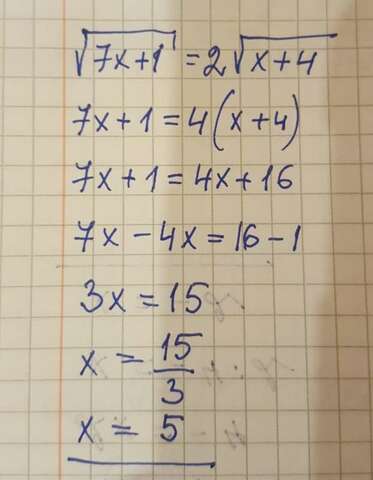 √(7x+1) = 2√(x+4)
7x+1 = 4(x+4)
7x+1 = 4x+16
7x-4x = 16-1
3x = 15
x = 15/3
x = 5